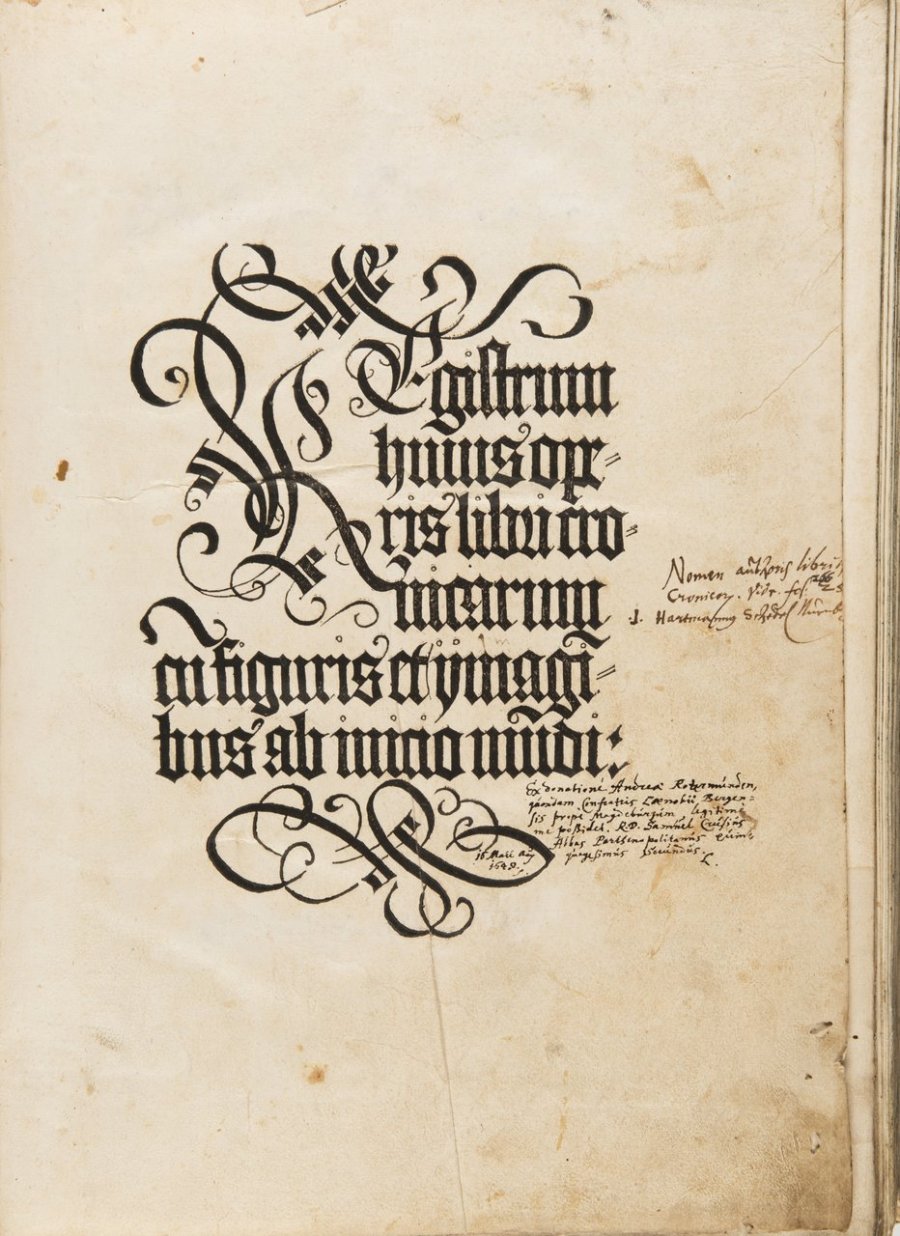 REgistrum
huius ope-
ris libri cro-
nicarum
cū figuris et ymagi-
bus ab inicio mūdi:
Nomen authoris libri
Cronicor. Vide. fol.
1. Hartmannus Schedel Nurnb
Ex donatione Andreæ Rotermunden,
quondam Confratris Cœnobii Bergen-
sis prope Magdeburgum, legitime
me possidet. R.D. Samuel Crusius
Abbas Parthenopolitanus
quagesimus secundus.
16 Maii
L.